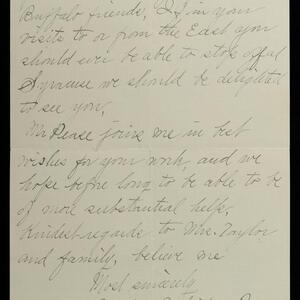 Buffalo friends, If in your
visits to or from the East you
should ever be able to stop off at
Syracuse we should be delighted
to see you.
Mr Pease joins me in best
wishes for your work, and we
hope before long to be able to be
of more substantial help.
Kindest regards to Mrs. Taylor
and family, believe me
Most sincerely